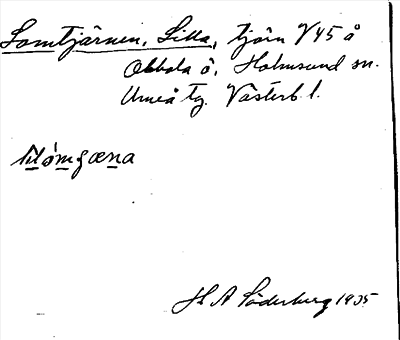 Lomtjärnen, Lilla, tjärn V45 å
Obbola ö, Holmsund sn.
Umeå tg. Västerb l.
H A Söderberg 1935